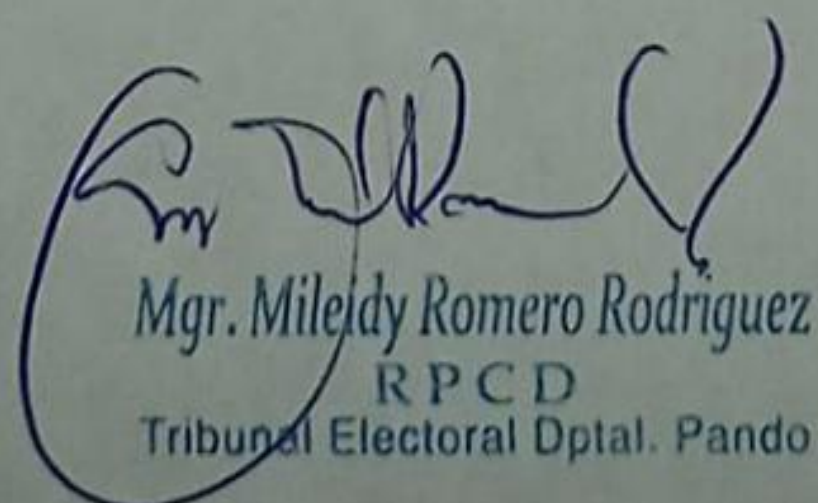 Mgr. Mileidy Romero Rodriguez
RPCD
Tribunal Electoral Dptal. Pando